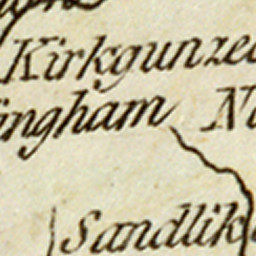 Kirkgunzeo
ingham N
Sandlik